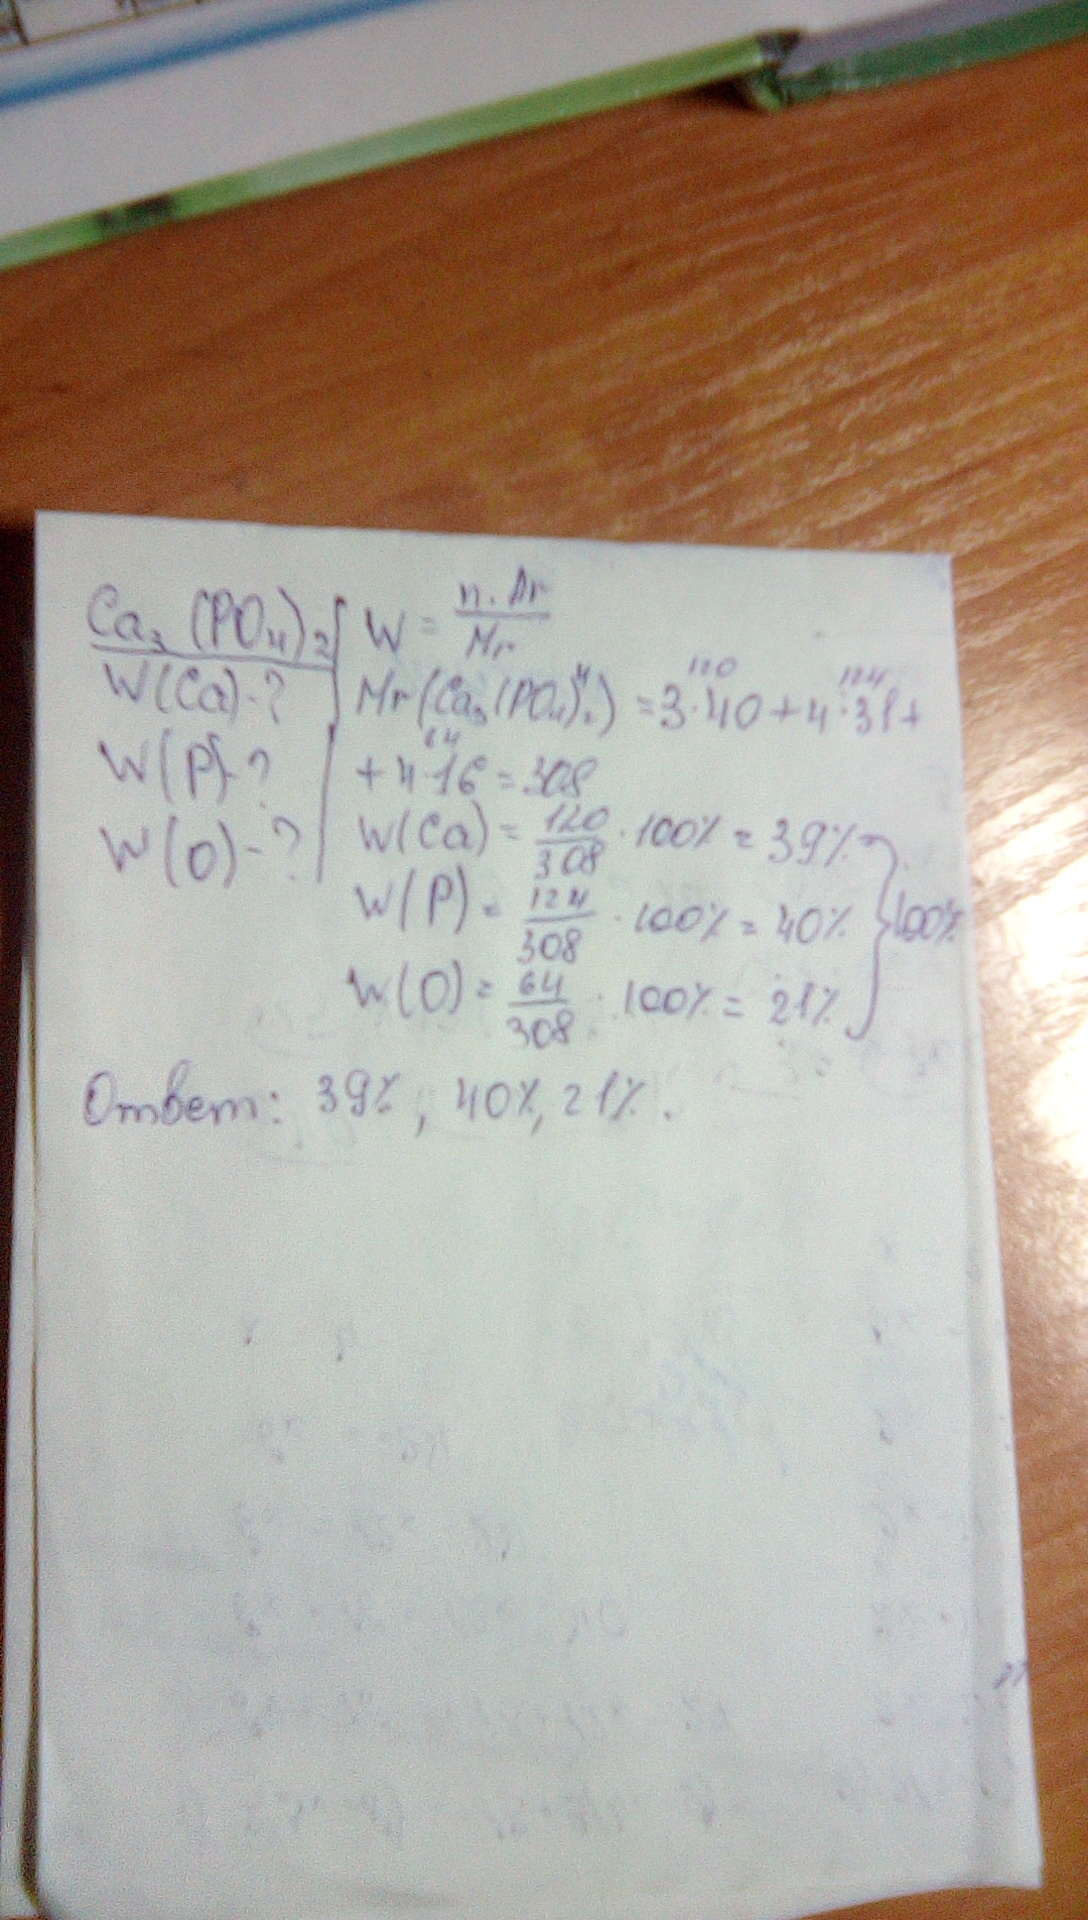 Ca₃(PO₄)₂
W(Ca)-?
W(P)-?
W(O)-?
W = n·Ar / Mr
120 124
Mr(Ca₃(PO₄)₂) = 3·40+4·31+
64
+4·16 = 308
W(Ca) = 120/308 · 100% = 39%
W(P) = 124/308 · 100% = 40%
W(O) = 64/308 · 100% = 21%
} 100%
Ответ: 39%, 40%, 21%.